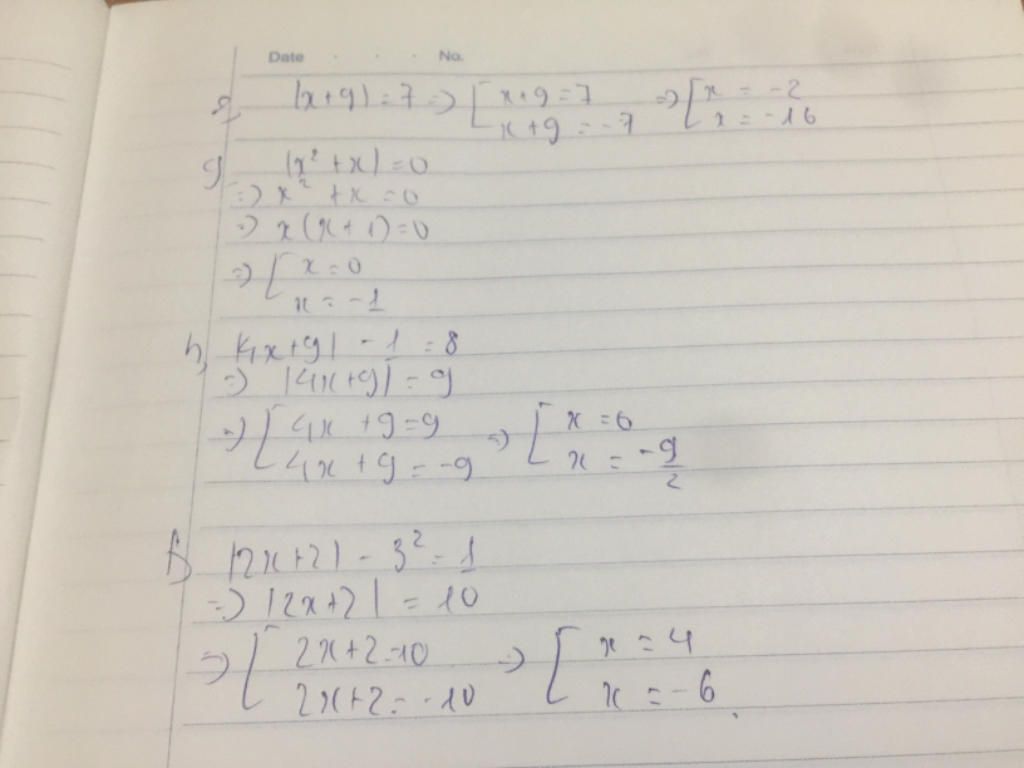 Date . . . No.
e, |x+9| = 7 => [ x+9=7 => [ x = -2
x+9 = -7 x = -16
g) |x² + x| = 0
=> x² + x = 0
=> x(x+1)=0
=> [ x = 0
x = -1
h, |4x+9| - 1 = 8
=> |4x+9| = 9
=> [ 4x + 9 = 9 => [ x = 0
4x + 9 = -9 x = -9/2
f) |2x+2| - 3² = 1
=> |2x+2| = 10
=> [ 2x+2=10 => [ x = 4
2x+2 = -10 x = -6.